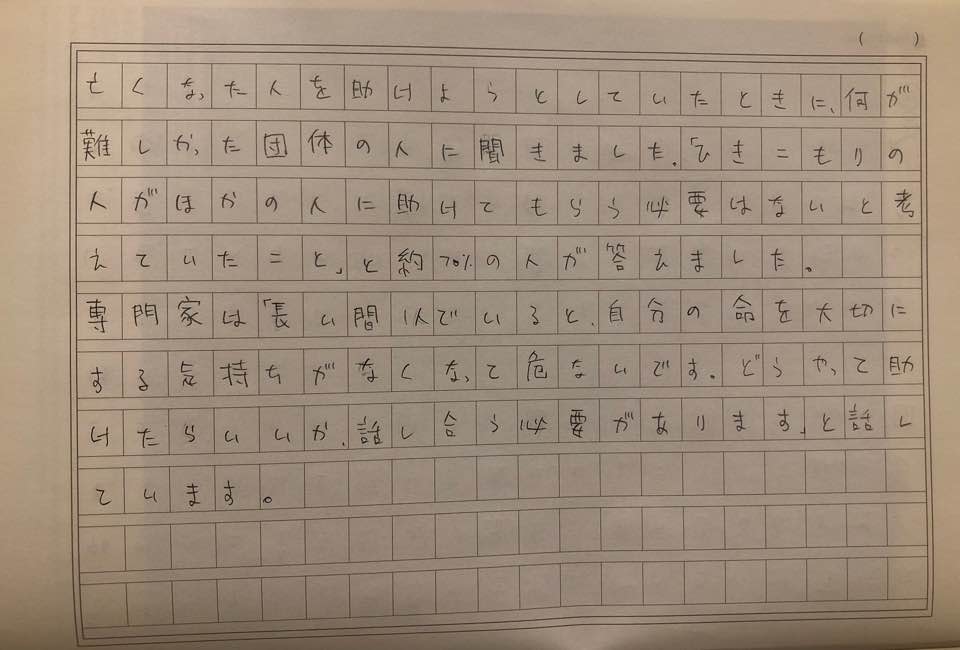 ( )
亡くなった人を助けようとしていたときに、何が
難しかった団体の人に聞きました。「ひきこもりの
人がほかの人に助けてもらう必要はないと考
えていたこと」と約70%の人が答えました。
専門家は「長い間1人でいると、自分の命を大切に
する気持ちがなくなって危ないです。どうやって助
けたらいいか、話し合う必要があります」と話し
ています。